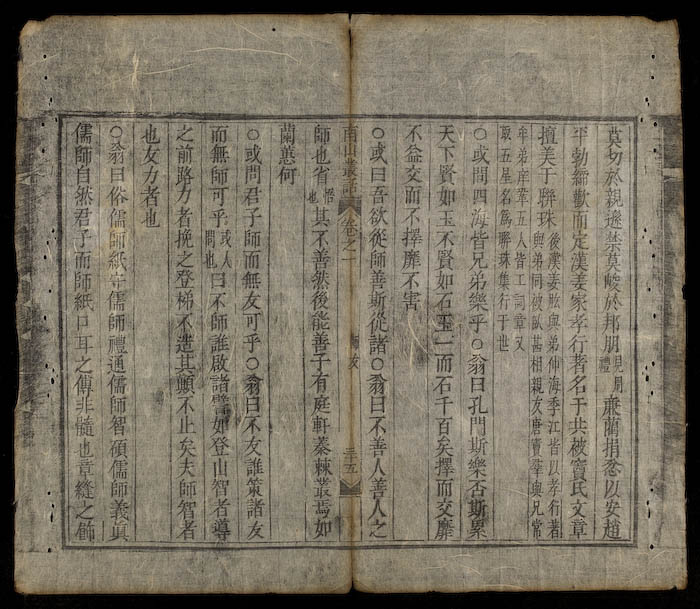 莫切於親遜禁莫峻於邦朋見朋禮廉藺捐忿以安趙
平勃締歡而定漢姜家孝行著名于共被竇氏文章
擅美于聯珠後漢姜肱與弟仲海季江皆以孝行著與弟同被臥甚相親友唐竇羣與兄常
牟弟庠鞏五人皆工詞章又取五星名爲聯珠集行于世
○或問四海皆兄弟樂乎○翁曰孔門斯樂否斯累
天下賢如玉不賢如石玉一而石千百矣擇而交靡
不益交而不擇靡不害
○或曰吾欲從師善斯從諸○翁曰不善人善人之
南山叢話 卷之一 師友 三十五
師也省悟也其不善然後能善子有庭軒蓁棘叢焉如
蘭蕙何
○或問君子師而無友可乎○翁曰不友誰策諸友
而無師可乎或人問也曰不師誰啟諸譬如登山智者導
之前路力者挽之登梯不造其顛不止矣夫師智者
也友力者也
○翁曰俗儒師紙守儒師禮通儒師智碩儒師義眞
儒師自然君子而師紙口耳之傳非髓也章縫之飾